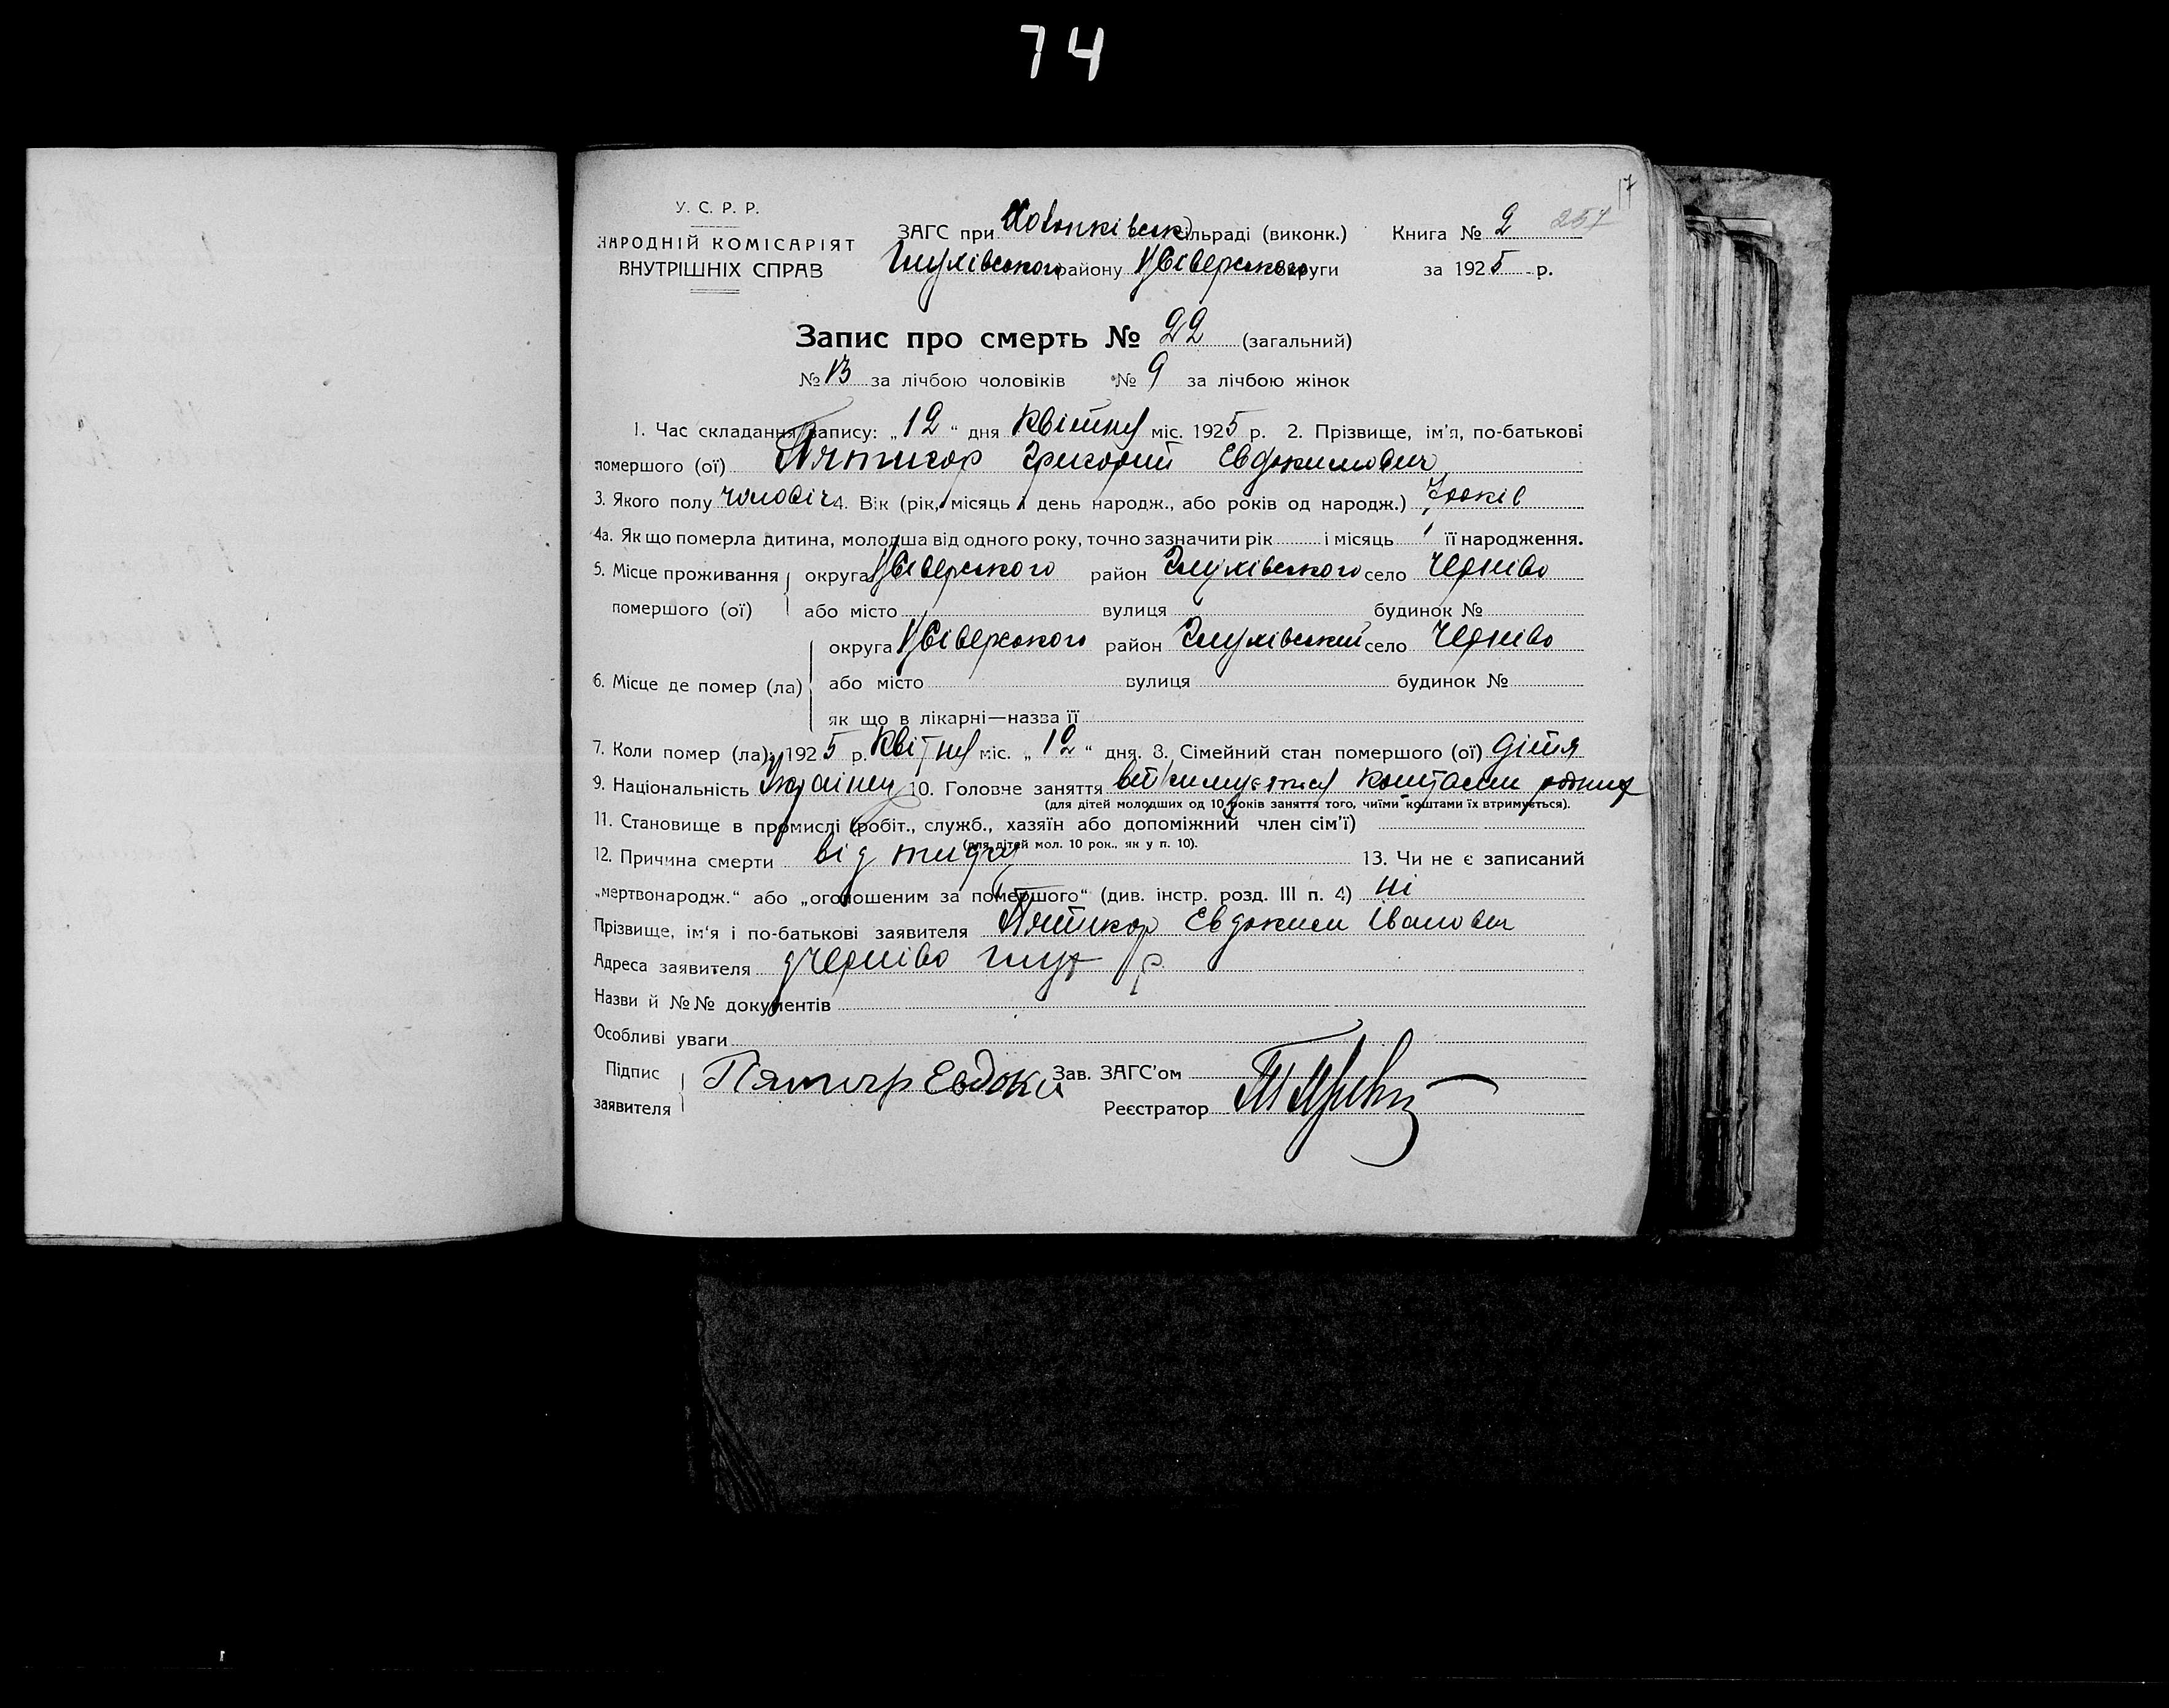 74
17
У. С. Р. Р.
НАРОДНІЙ КОМІСАРІЯТ
ВНУТРІШНІХ СПРАВ
ЗАГС при сільраді (виконк.) Книга № 2 257
Глухівського району Н/Сіверського округи за 1925 р.
Запис про смерть № 22 (загальний)
№ 13 за лічбою чоловіків № 9 за лічбою жінок
1. Час складання запису: „12“ дня Квітня міс. 1925 р. 2. Прізвище, ім'я, по-батькові
помершого (ої) Пятигор Григорий Евдокимович
3. Якого полу чоловіч 4. Вік (рік, місяць і день народж., або років од народж.) 7 років
4а. Як що померла дитина, молодша від одного року, точно зазначити рік і місяць її народження.
5. Місце проживання округа Н/Сіверського район Глухівського село Черніво
помершого (ої) або місто вулиця будинок №
округа Н/Сіверського район Глухівский село Черніво
6. Місце де помер (ла) або місто вулиця будинок №
як що в лікарні—назва її
7. Коли помер (ла): 1925 р. Квітня міс. „12“ дня. 8. Сімейний стан помершого (ої) дітя
9. Національність Українец 10. Головче заняття коштами
(для дітей молодших од 10 років заняття того, чиїми коштами їх втримується).
11. Становище в промислі (робіт., служб., хазяїн або допоміжний член сім'ї)
(для дітей мол. 10 рок., як у п. 10).
12. Причина смерти від тифу 13. Чи не є записаний
„мертвонародж.“ або „оголошеним за помершого“ (див. інстр. розд. III п. 4) ні
Прізвище, ім'я і по-батькові заявителя Пятигор Евдоким Іванович
Адреса заявителя Черніво глух р
Назви й №№ документів
Особливі уваги
Підпис Пятигр Евдоки Зав. ЗАГС'ом
заявителя Реєстратор